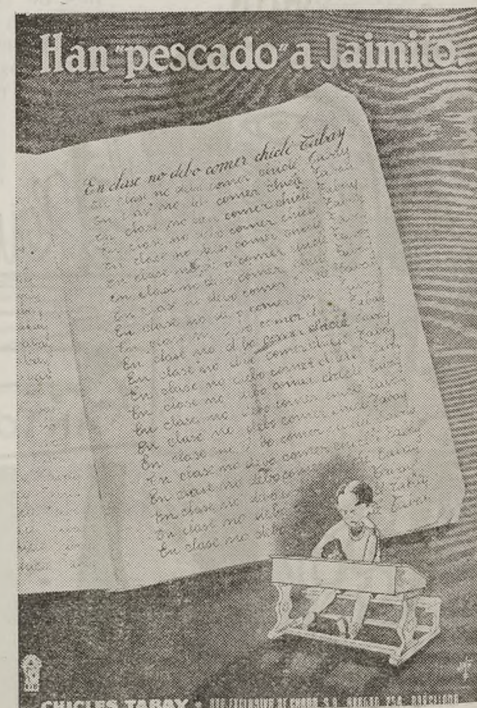 Han "pescado" a Jaimito.
En clase no debo comer chicle Tabay
En clase no debo comer chicle Tabay
En clase no debo comer chicle Tabay
En clase no debo comer chicle Tabay
En clase no debo comer chicle Tabay
En clase no debo comer chicle Tabay
En clase no debo comer chicle Tabay
En clase no debo comer chicle Tabay
En clase no debo comer chicle Tabay
En clase no debo comer chicle Tabay
En clase no debo comer chicle Tabay
En clase no debo comer chicle Tabay
En clase no debo comer chicle Tabay
En clase no debo comer chicle Tabay
En clase no debo comer chicle Tabay
En clase no debo comer chicle Tabay
En clase no debo comer chicle Tabay
En clase no debo comer chicle Tabay
En clase no debo Tabay
En clase no debo Tabay
En clase no debo Tabay
CHICLES TABAY • EXCLUSIVA DE S.A. BARCELONA